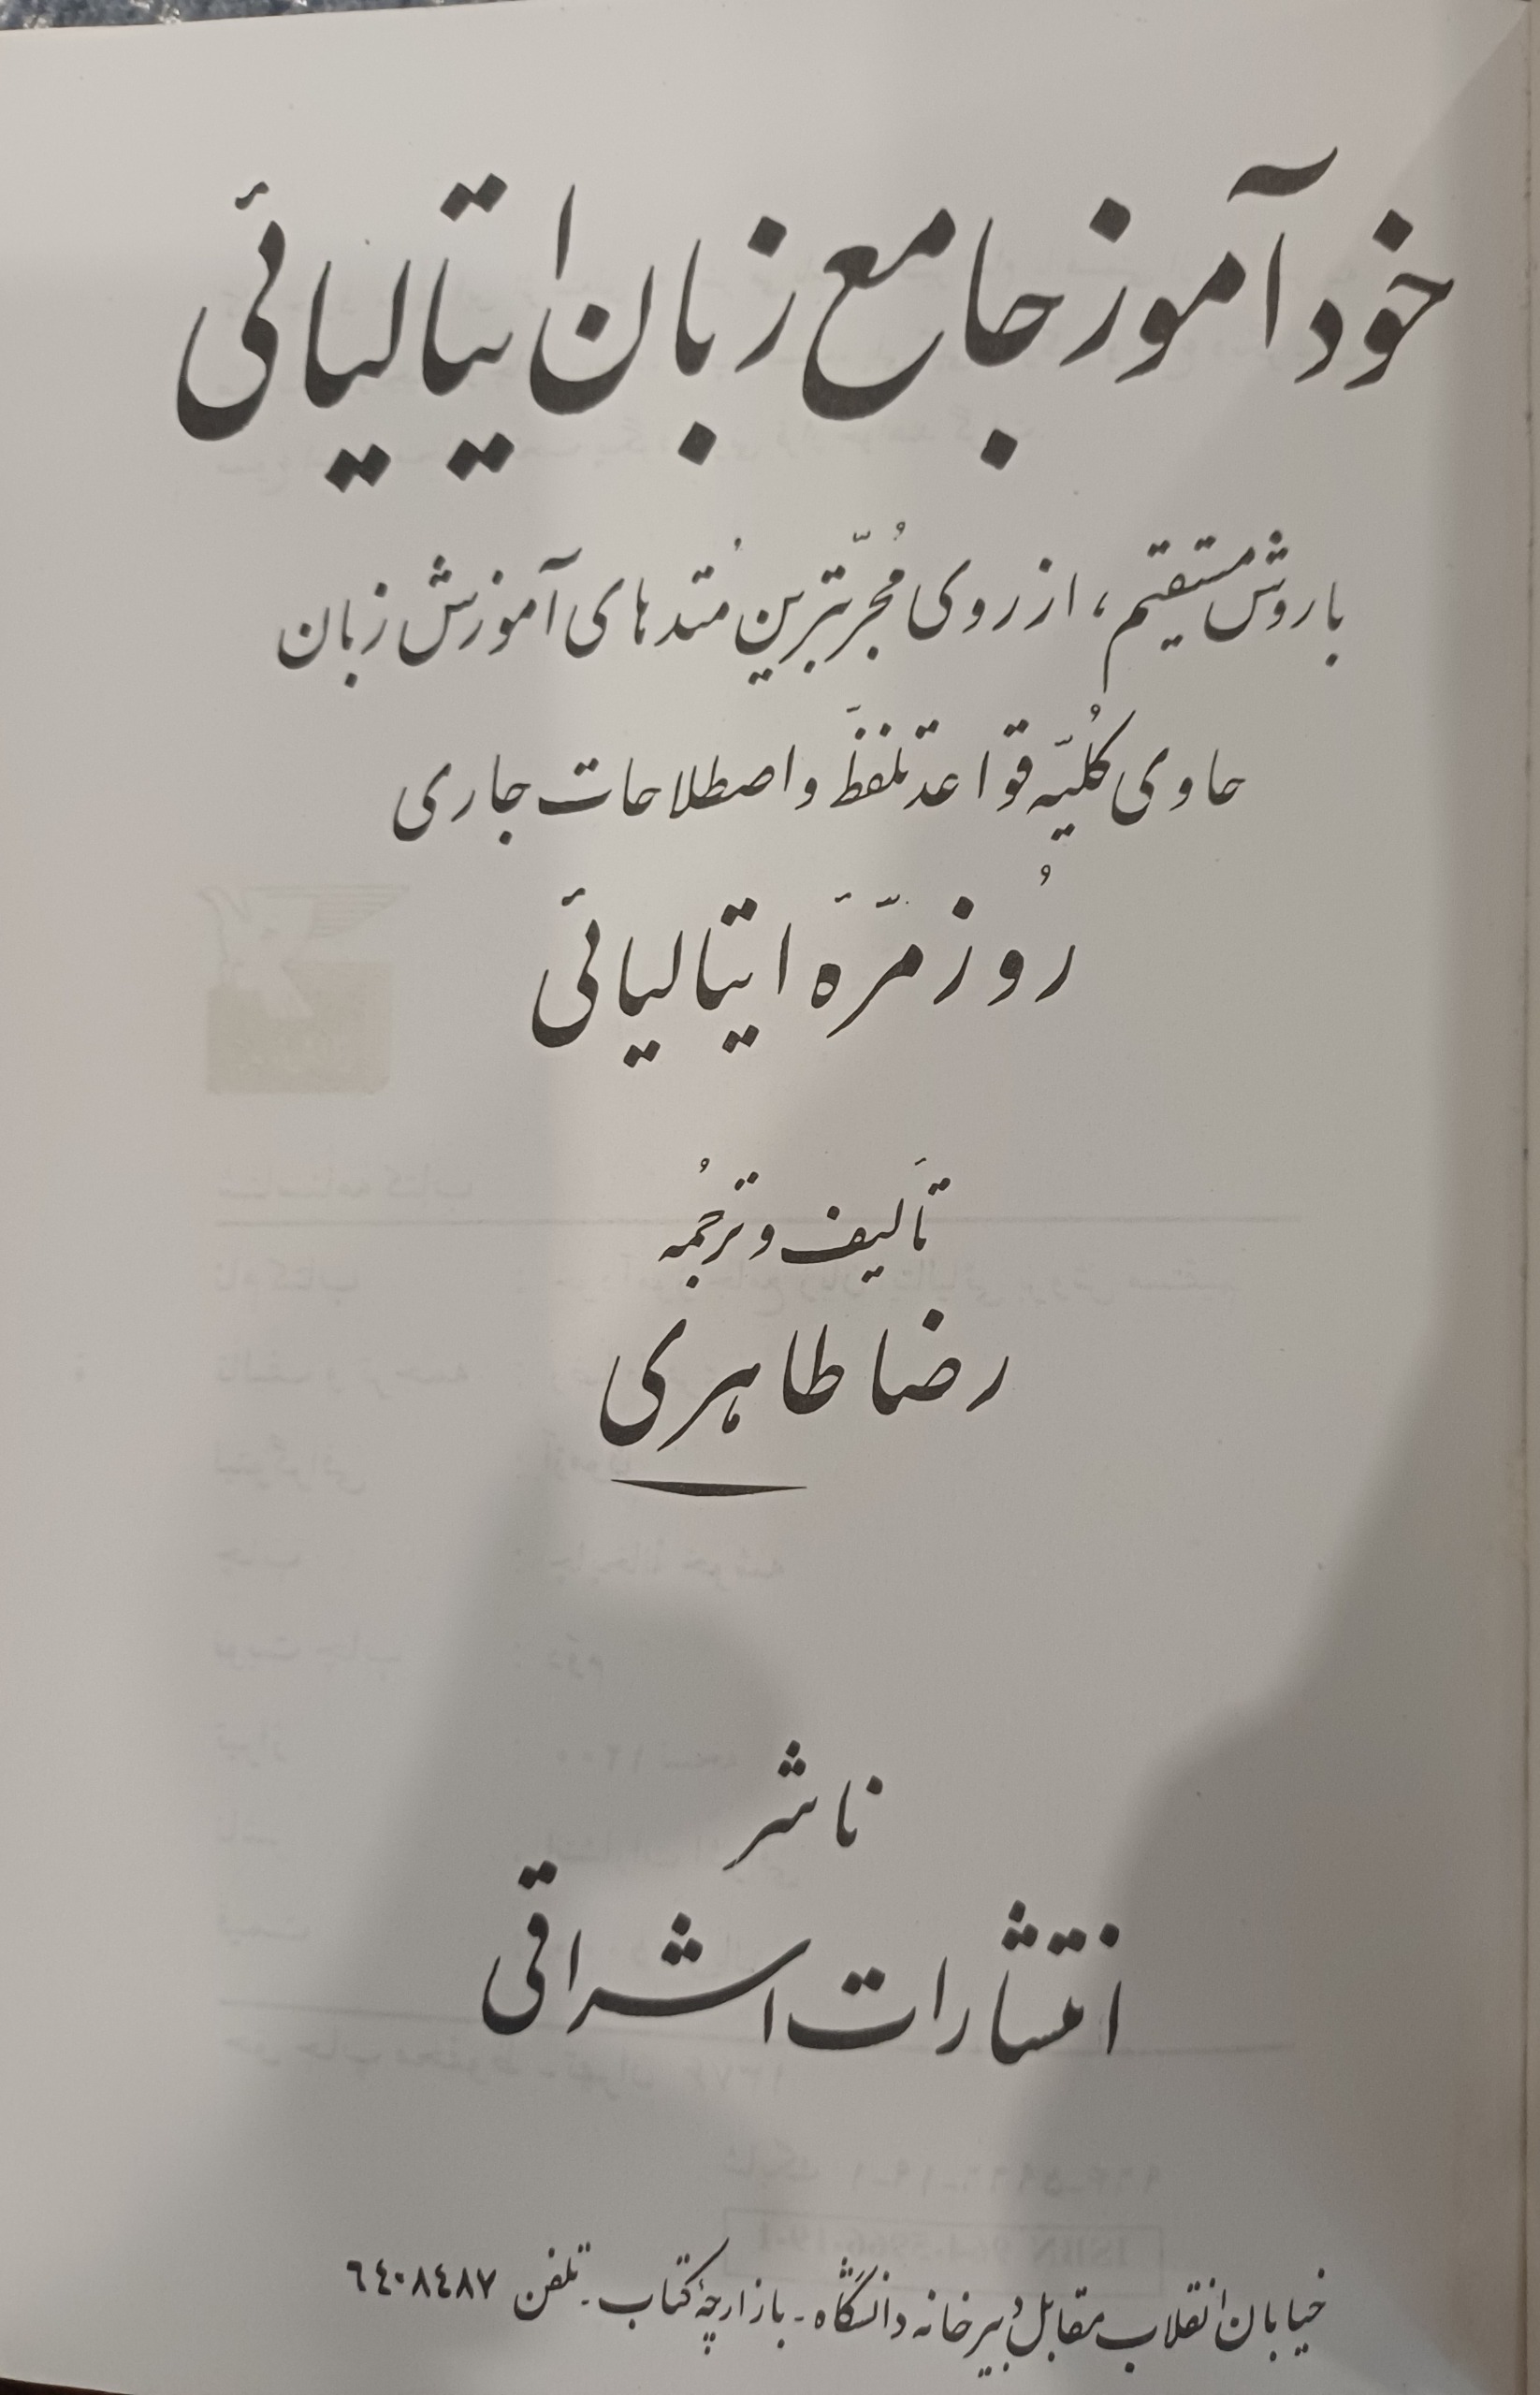 خودآموز جامع زبان ایتالیائی
با روش مستقیم، از روی مُجرّبترین مُتدهای آموزش زبان
حاوی کُلیّه قواعد تلفظَ و اصطلاحات جاری
رُوزمَرّه ایتالیائی
تألیف و ترجُمه
رضا طاهری
ناشر
انتشارات اشراقی
خیابان انقلاب مقابل دبیرخانه دانشگاه - بازارچهٔ کتاب - تلفن ٦٤٠٨٤٨٧